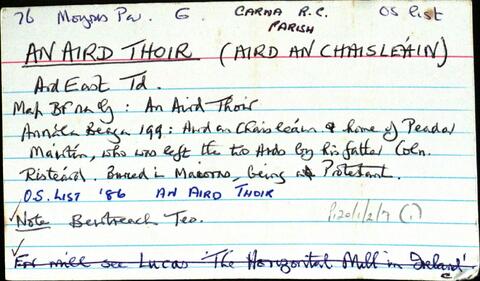 76 Moyrus Par. G CARNA R.C. PARISH OS list
AN AIRD THOIR (AIRD AN CHAISLEÁIN)
Ard East Td.
Map BF na G: An Aird Thoir
Annála Beaga 199: Aird an Chaisleáin & home of Peadar
Máirtín, who was left the two Ards by his father Coln.
Risteárd. Buried in Maíoros, being a Protestant.
O.S. LIST '86 AN AIRD THOIR
✓ Note Bentreach Teo. P120/1/2/7 (1)
✓ For mill see Lucas 'The Horizontal Mill in Ireland'